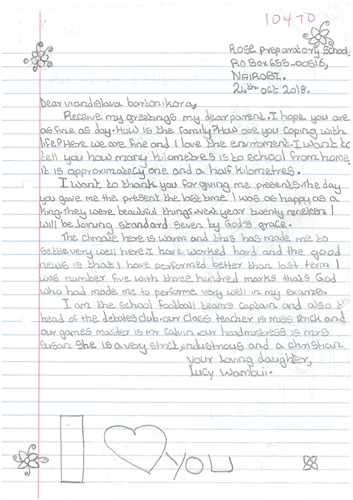 10470
Rose Preparatory School,
P.O BOX 655-00516,
NAIROBI.
24th Oct 2018.
Dear viandislava bortnikora,
Receive my greetings my dear parent. I hope you are
as fine as day. How is the family? How are you coping with
life? Here we are fine and I love the enviroment. I want to
tell you how many kilometres is to school from home,
it is approximately one and a half kilometres.
I want to thank you for giving me presents. The day
you gave me the present the last time. I was as happy as a
king. They were beautiful things. Next year twenty nineteen I
will be Joining standard seven by God's grace.
The climate here is warm and this has made me to
settle very well here. I have worked hard and the good
news is that I have performed better than last term I
was number five with three hundred marks that's God
who had made me to performe very well in my exams.
I am the school football team's captain and also the
head of the debates club. our class teacher is miss and
our games master is mr Calvin. our headmistress is mrs
Susan. She is a very strict, industrious and a christian
your loving daughter,
Lucy Wambui.
I YOU